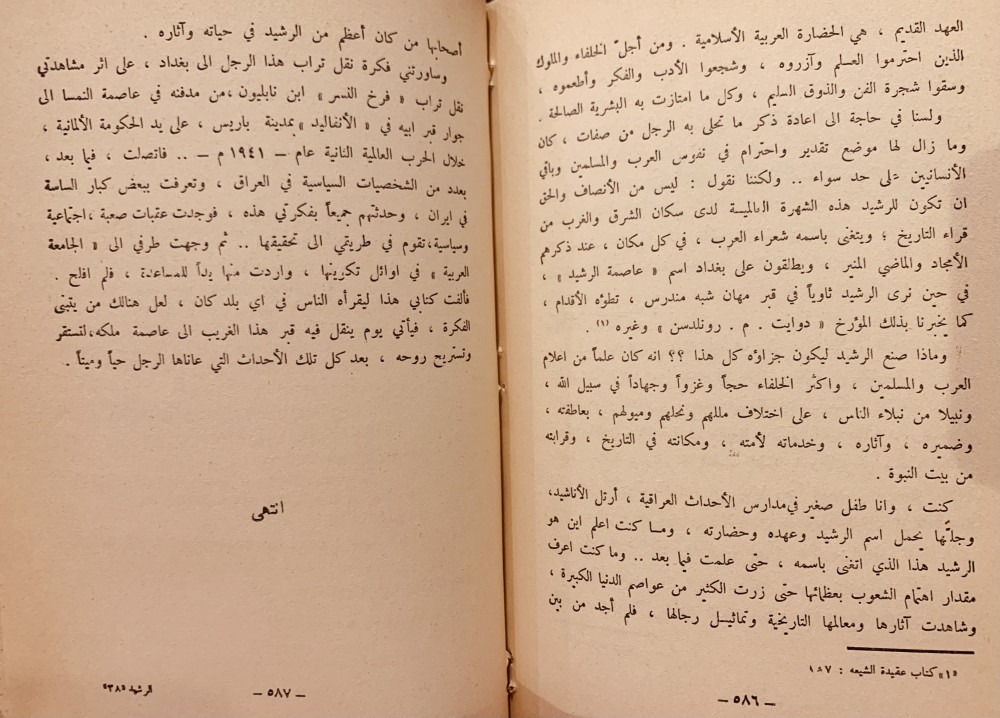 العهد القديم ، هي الحضارة العربية الأسلامية . ومن أجلّ الخلفاء والملوك
الذين احترموا العلم وآزروه ، وشجعوا الأدب والفكر وأطعموه ،
وسقوا شجرة الفن والذوق السليم ، وكل ما امتازت به البشرية الصالحة .
ولسنا في حاجة الى اعادة ذكر ما تحلى به الرجل من صفات ، كان
وما زال لها موضع تقدير واحترام في نفوس العرب والمسلمين وباقي
الأنسانيين على حد سواء .. ولكننا نقول : ليس من الأنصاف والحق
ان تكون للرشيد هذه الشهرة العالمية لدى سكان الشرق والغرب من
قراء التاريخ ؛ ويتغنى باسمه شعراء العرب ، في كل مكان ، عند ذكرهم
الأمجاد والماضي المنير ، ويطلقون على بغداد اسم « عاصمة الرشيد » ،
في حين نرى الرشيد ثاوياً في قبر مهان شبه مندرس ، تطؤه الأقدام ،
كما يخبرنا بذلك المؤرخ « دوايت . م . رونلدسن » وغيره (١) .
وماذا صنع الرشيد ليكون جزاؤه كل هذا ؟؟ انه كان علماً من اعلام
العرب والمسلمين ، واكثر الخلفاء حجاً وغزواً وجهاداً في سبيل الله ،
ونبيلا من نبلاء الناس ، على اختلاف مللهم ونحلهم وميولهم ، بعاطفته ،
وضميره ، وآثاره ، وخدماته لأمته ، ومكانته في التاريخ ، وقرابته
من بيت النبوة .
كنت ، وانا طفل صغير في مدارس الأحداث العراقية ، أرتل الأناشيد،
وجلّها يحمل اسم الرشيد وعهده وحضارته ، وما كنت اعلم اين هو
الرشيد هذا الذي اتغنى باسمه ، حتى علمت فيما بعد .. وما كنت اعرف
مقدار اهتمام الشعوب بعظمائها حتى زرت الكثير من عواصم الدنيا الكبيرة ،
وشاهدت آثارها ومعالمها التاريخية وتماثيل رجالها ، فلم أجد من بين
«١» كتاب عقيدة الشيعه :
— ٥٨٦ —
أصحابها من كان أعظم من الرشيد في حياته وآثاره .
وساورتني فكرة نقل تراب هذا الرجل الى بغداد ، على اثر مشاهدتي
نقل تراب « فرخ النسر » ابن نابليون ،من مدفنه في عاصمة النمسا الى
جوار قبر ابيه في « الأنفاليد »بمدينة باريس ، على يد الحكومة الألمانية ،
خلال الحرب العالمية الثانية عام – ١٩٤١ م – .. فاتصلت ، فيما بعد ،
بعدد من الشخصيات السياسية في العراق ، وتعرفت ببعض كبار الساسة
في ايران ، وحدثتهم جميعاً بفكرتي هذه ، فوجدت عقبات صعبة ،اجتماعية
وسياسية،تقوم في طريقي الى تحقيقها .. ثم وجهت طرفي الى « الجامعة
العربية » في اوائل تكوينها ، واردت منها يداً للمساعدة ، فلم افلح .
فألفت كتابي هذا ليقرأه الناس في اي بلد كان ، لعل هنالك من يتبنى
الفكرة ، فيأتي يوم ينقل فيه قبر هذا الغريب الى عاصمة ملكه،لتستقر
وتستريح روحه ، بعد كل تلك الأحداث التي عاناها الرجل حياً وميتاً .
انتهى
— ٥٨٧ —
الرشيد «٣٨»